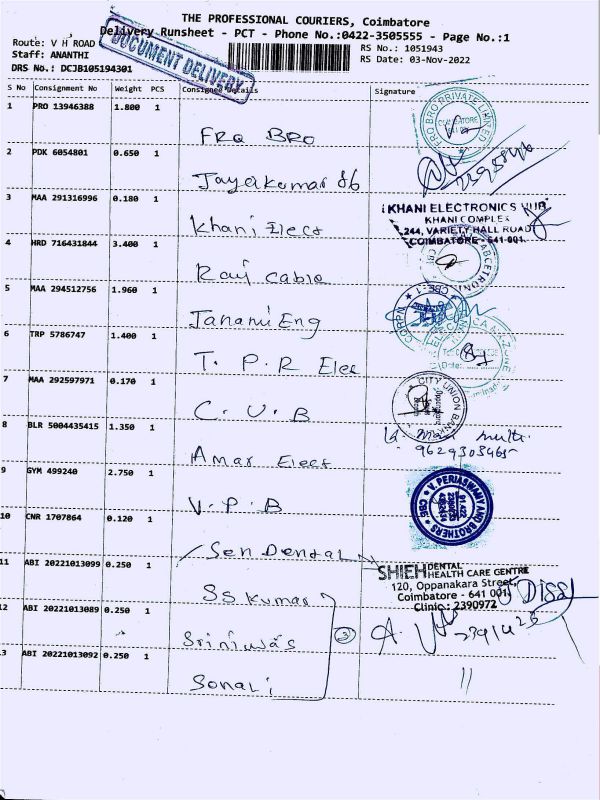 THE PROFESSIONAL COURIERS, Coimbatore
Delivery Runsheet - PCT - Phone No.:0422-3505555 - Page No.:1
Route: V H ROAD
RS No.: 1051943
Staff: ANANTHI
RS Date: 03-Nov-2022
DRS No.: DCJB105194301
DOCUMENT DELIVERY
S No Consignment No Weight PCS Consignee Details Signature
1 PRO 13946388 1.800 1
FRQ BRO
FRQ BRO PRIVATE LIMITED
COIMBATORE
2 PDK 6054801 0.650 1
Jayakumar
3 MAA 291316996 0.180 1
Khani Elect
KHANI ELECTRONICS HUB
KHANI COMPLEX
244, VARIETY HALL ROAD
COIMBATORE - 641 001.
4 HRD 716431844 3.400 1
Raj Cable
5 MAA 294512756 1.960 1
Janani Eng
6 TRP 5786747 1.400 1
T. P. R Elec
Date:
7 MAA 292597971 0.170 1
C. U. B
CITY UNION BANK
8 BLR 5004435415 1.350 1
Amar Elect
9629303465
9 GYM 499240 2.750 1
V. P. B
V. PERIASWAMY AND BROTHERS
CBE
10 CNR 1707864 0.120 1
Sen Dental
SHIEH DENTAL
HEALTH CARE CENTRE
120, Oppanakara Street,
Coimbatore - 641 001.
Clinic: 2390972
11 ABI 20221013099 0.250 1
SS Kumar
12 ABI 20221013089 0.250 1
Sriniwas
3
13 ABI 20221013092 0.250 1
Sonali